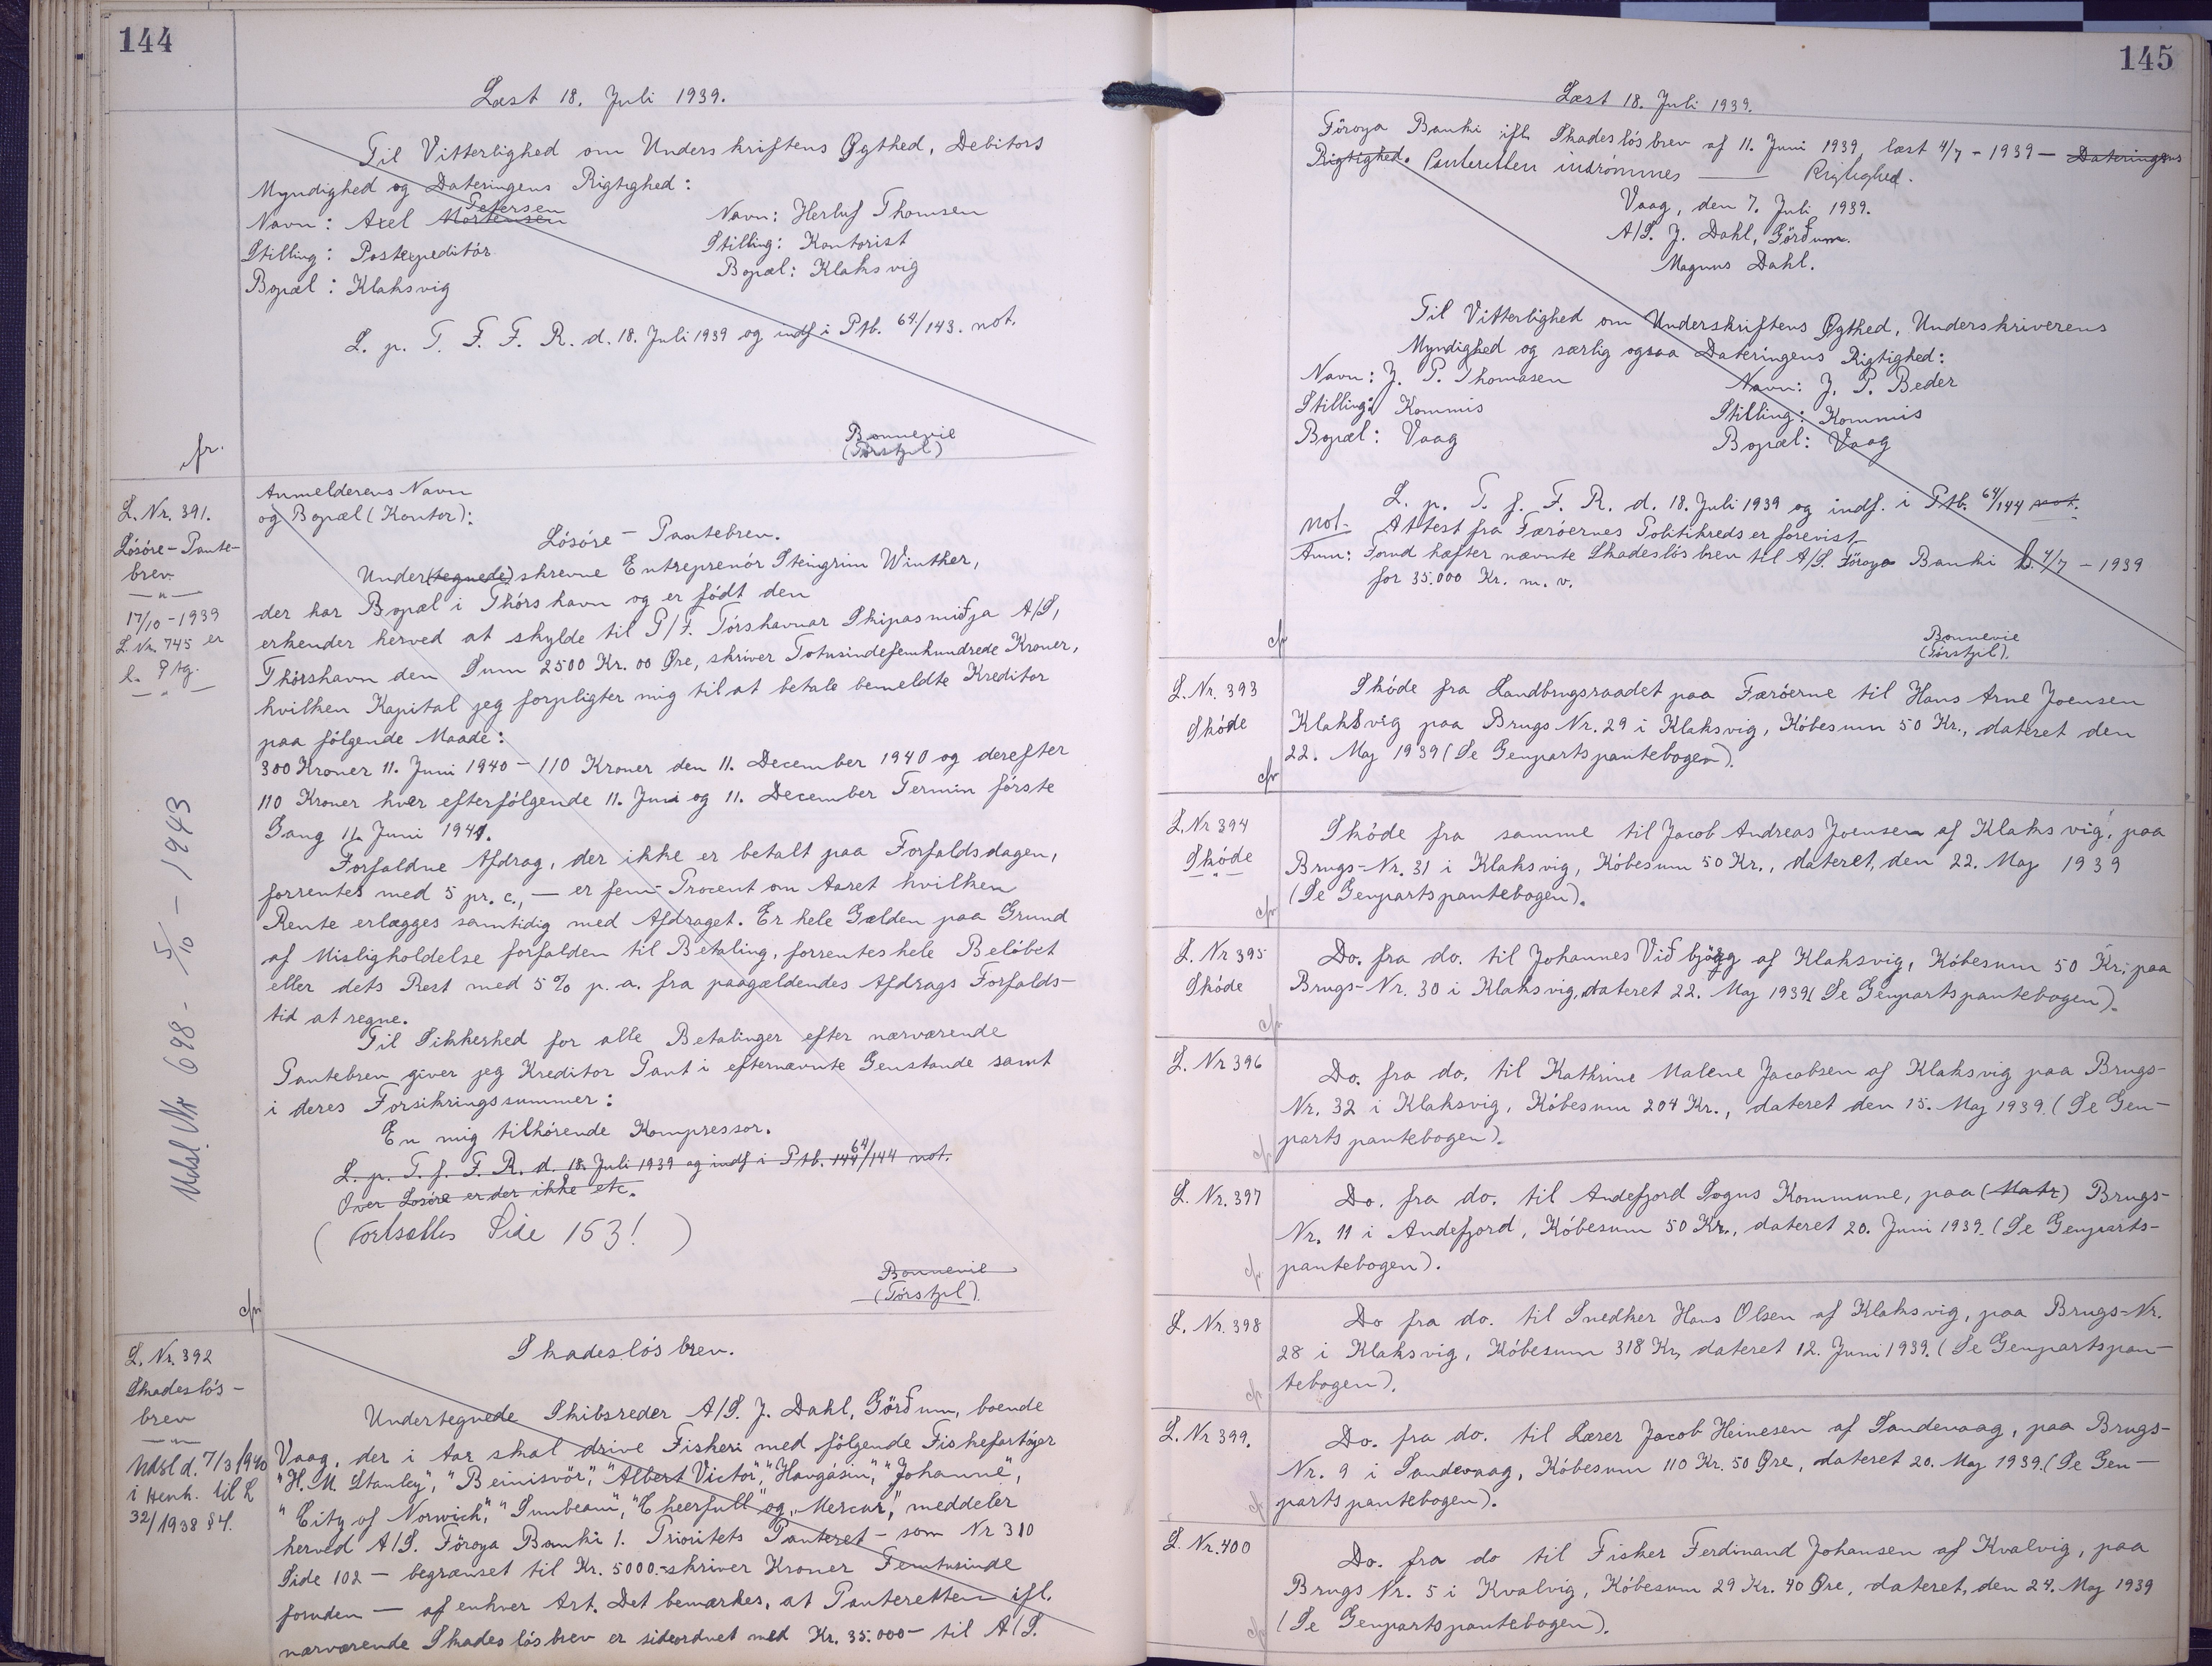 144
Læst 18. Juli 1939.
Til Vitterlighed om Underskriftens Ægthed, Debitors
Myndighed og Dateringens Rigtighed:
Navn: Axel Mortensen Petersen
Stilling: Postexpeditör
Bopæl: Klaksvig
Navn: Herluf Thomsen
Stilling: Kontorist
Bopæl: Klaksvig
L. p. T. F. F. R. d. 18. Juli 1939 og indf i Ptb. 64/143. not.
Bonnevie
cfr.
L. Nr. 391.
Lösöre-Pante-
brev.
17/10-1939
L. Nr. 745 er
l. Ptg.
Udsl. Nr 698 - 5/10 - 1943
Anmelderens Navn
og Bopæl (Kontor):
Lösöre-Pantebrev.
Under(tegnede)skrevne Entreprenör Steingrim Winther,
der har Bopæl i Thórshavn og er födt den
erkender herved at skylde til P/F. Tórshavnar Skipasmiðja A/S,
Thórshavn den Sum 2500 Kr. 00 Øre, skriver Totusindefemhundrede Kroner,
hvilken Kapital jeg forpligter mig til at betale bemeldte Kreditor
paa fölgende Maade:
300 Kroner 11. Juni 1940 - 110 Kroner den 11. December 1940 og derefter
110 Kroner hver efterfölgende 11. Juni og 11. December Termin förste
Gang 11. Juni 1941.
Forfaldne Afdrag, der ikke er betalt paa Forfaldsdagen,
forrentes med 5 pr. c., — er fem Procent om Aaret hvilken
Rente erlægges samtidig med Afdraget. Er hele Gælden paa Grund
af Misligholdelse forfalden til Betaling, forrentes hele Belöbet
eller dets Rest med 5% p. a. fra paagældendes Afdrags Forfalds-
tid at regne.
Til Sikkerhed for alle Betalinger efter nærværende
Pantebrev giver jeg Kreditor Pant i efternævnte Genstande samt
i deres Forsikringssummer:
En mig tilhörende Kompressor.
L. p. T. f. F. R. d. 18. Juli 1939 og indf i Ptb. 64/144 not.
Over Lösöre er der ikke etc.
(Fortsættes Side 153!)
Bonnevie
cfr
L. Nr. 392
Skadeslös-
brev
Udsl d. 7/3 1940
i Henh. til L
32/1938 § 4.
Skadeslösbrev.
Undertegnede Skibsreder A/S. J. Dahl, Görðum, boende
Vaag, der i Aar skal drive Fiskeri med fölgende Fiskefartöjer
"H. M. Stanley", "Beinisvör", "Albert Victor", "Havgásin", "Johanne",
"City of Norwich", "Sunbeam", "Cheerfull" og "Mercur", meddeler
herved A/S. Föroya Banki 1. Prioritets Panteret - som Nr 310
Side 102 - begrænset til Kr. 5000.- skriver Kroner Femtusinde
foruden — af enhver Art. Det bemærkes, at Panteretten ifl.
nærværende Skadeslösbrev er sideordnet med Kr. 35.000 - til A/S.
145
Læst 18. Juli 1939.
Föroya Banki ifl. Skadeslösbrev af 11. Juni 1939, læst 4/7 - 1939 — Dateringens
Rigtighed. Panteretten indrömmes — Rigtighed.
Vaag, den 7. Juli 1939.
A/S. J. Dahl, Görðum.
Magnus Dahl.
Til Vitterlighed om Underskriftens Ægthed, Underskriverens
Myndighed og særlig ogsaa Dateringens Rigtighed:
Navn: J. P. Thomasen
Stilling: Kommis
Bopæl: Vaag
Navn: J. P. Beder
Stilling: Kommis
Bopæl: Vaag
L. p. T. f. F. R. d. 18. Juli 1939 og indf. i Ptb. 64/144 not.
not. Attest fra Færöernes Politikreds er forevist
Anm: Forud hæfter nævnte Skadeslösbrev til A/S. Föroya Banki l. 4/7 - 1939
for 35.000 Kr. m. v.
Bonnevie
cfr
L. Nr. 393
Sköde
Sköde fra Landbrugsraadet paa Færöerne til Hans Arne Joensen
Klaksvig paa Brugs Nr. 29 i Klaksvig, Köbesum 50 Kr., dateret den
22. Maj 1939 (Se Genpartspantebogen).
cfr
L. Nr 394
Sköde
Sköde fra samme til Jacob Andreas Joensen af Klaksvig, paa
Brugs-Nr. 31 i Klaksvig, Köbesum 50 Kr., dateret, den 22. Maj 1939
(Se Genpartspantebogen).
cfr
L. Nr 395
Sköde
Do. fra do. til Johannes Við bjögg af Klaksvig, Köbesum 50 Kr, paa
Brugs-Nr. 30 i Klaksvig, dateret 22. Maj 1939 (Se Genpartspantebogen).
cfr
L. Nr 396
Do. fra do. til Kathrine Malene Jacobsen af Klaksvig paa Brugs-
Nr. 32 i Klaksvig, Köbesum 204 Kr., dateret den 15. Maj 1939. (Se Gen-
partspantebogen).
cfr
L. Nr. 397
Do. fra do. til Andefjord Sogns Kommune, paa (Matr) Brugs-
Nr. 11 i Andefjord, Köbesum 50 Kr., dateret 20. Juni 1939. (Se Genparts-
pantebogen).
cfr
L. Nr. 398
Do fra do. til Snedker Hans Olsen af Klaksvig, paa Brugs-Nr.
28 i Klaksvig, Köbesum 318 Kr, dateret 12. Juni 1939. (Se Genpartspan-
tebogen).
cfr
L. Nr 399.
Do. fra do. til Lærer Jacob Heinesen af Sandevaag, paa Brugs-
Nr. 9 i Sandevaag, Köbesum 110 Kr. 50 Øre, dateret 20. Maj 1939. (Se Gen-
partspantebogen).
cfr
L. Nr. 400
Do. fra do til Fisker Ferdinand Johansen af Kvalvig, paa
Brugs Nr. 5 i Kvalvig, Köbesum 29 Kr. 40 Øre, dateret, den 24. Maj 1939
(Se Genpartspantebogen).
cfr